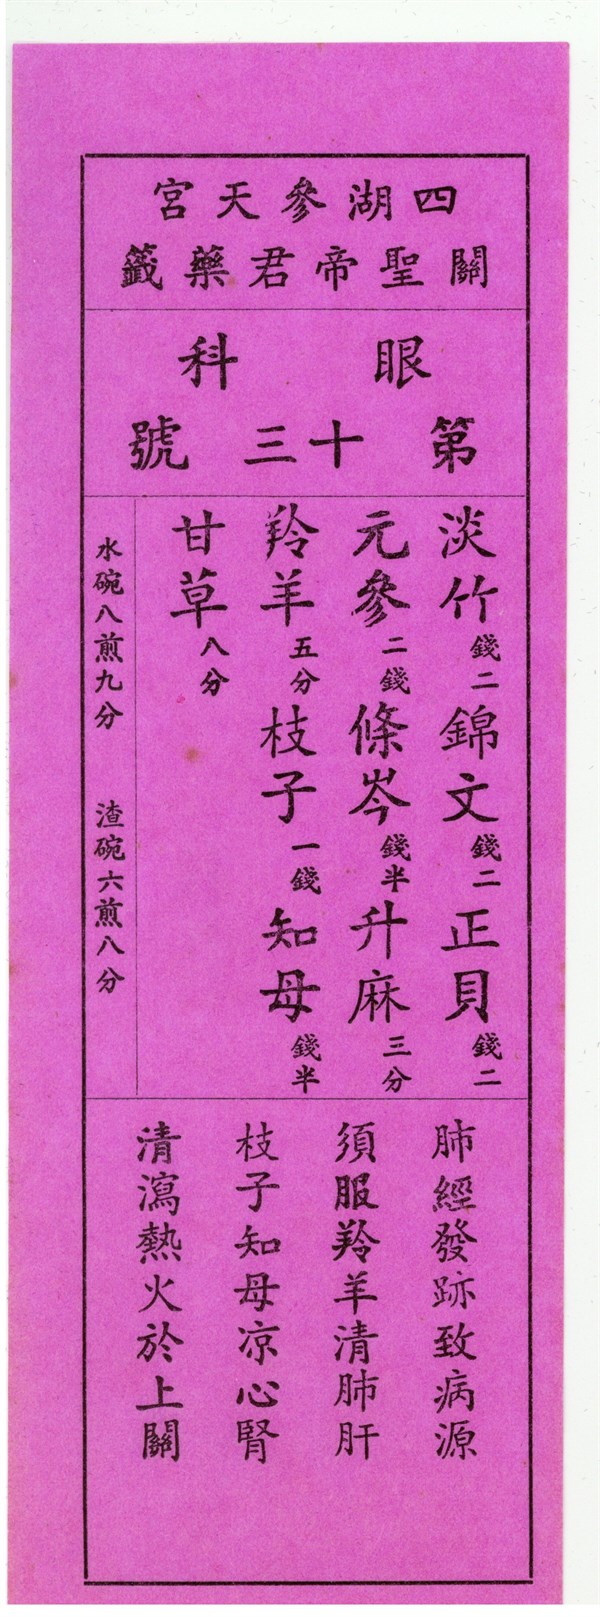 四湖參天宮
關聖帝君藥籤
眼科
第十三號
淡竹錢二 錦文錢二 正貝錢二
元參二錢 條岑錢半 升麻三分
羚羊五分 枝子一錢 知母錢半
甘草八分
水碗八煎九分 渣碗六煎八分
肺經發跡致病源
須服羚羊清肺肝
枝子知母凉心腎
清瀉熱火於上關